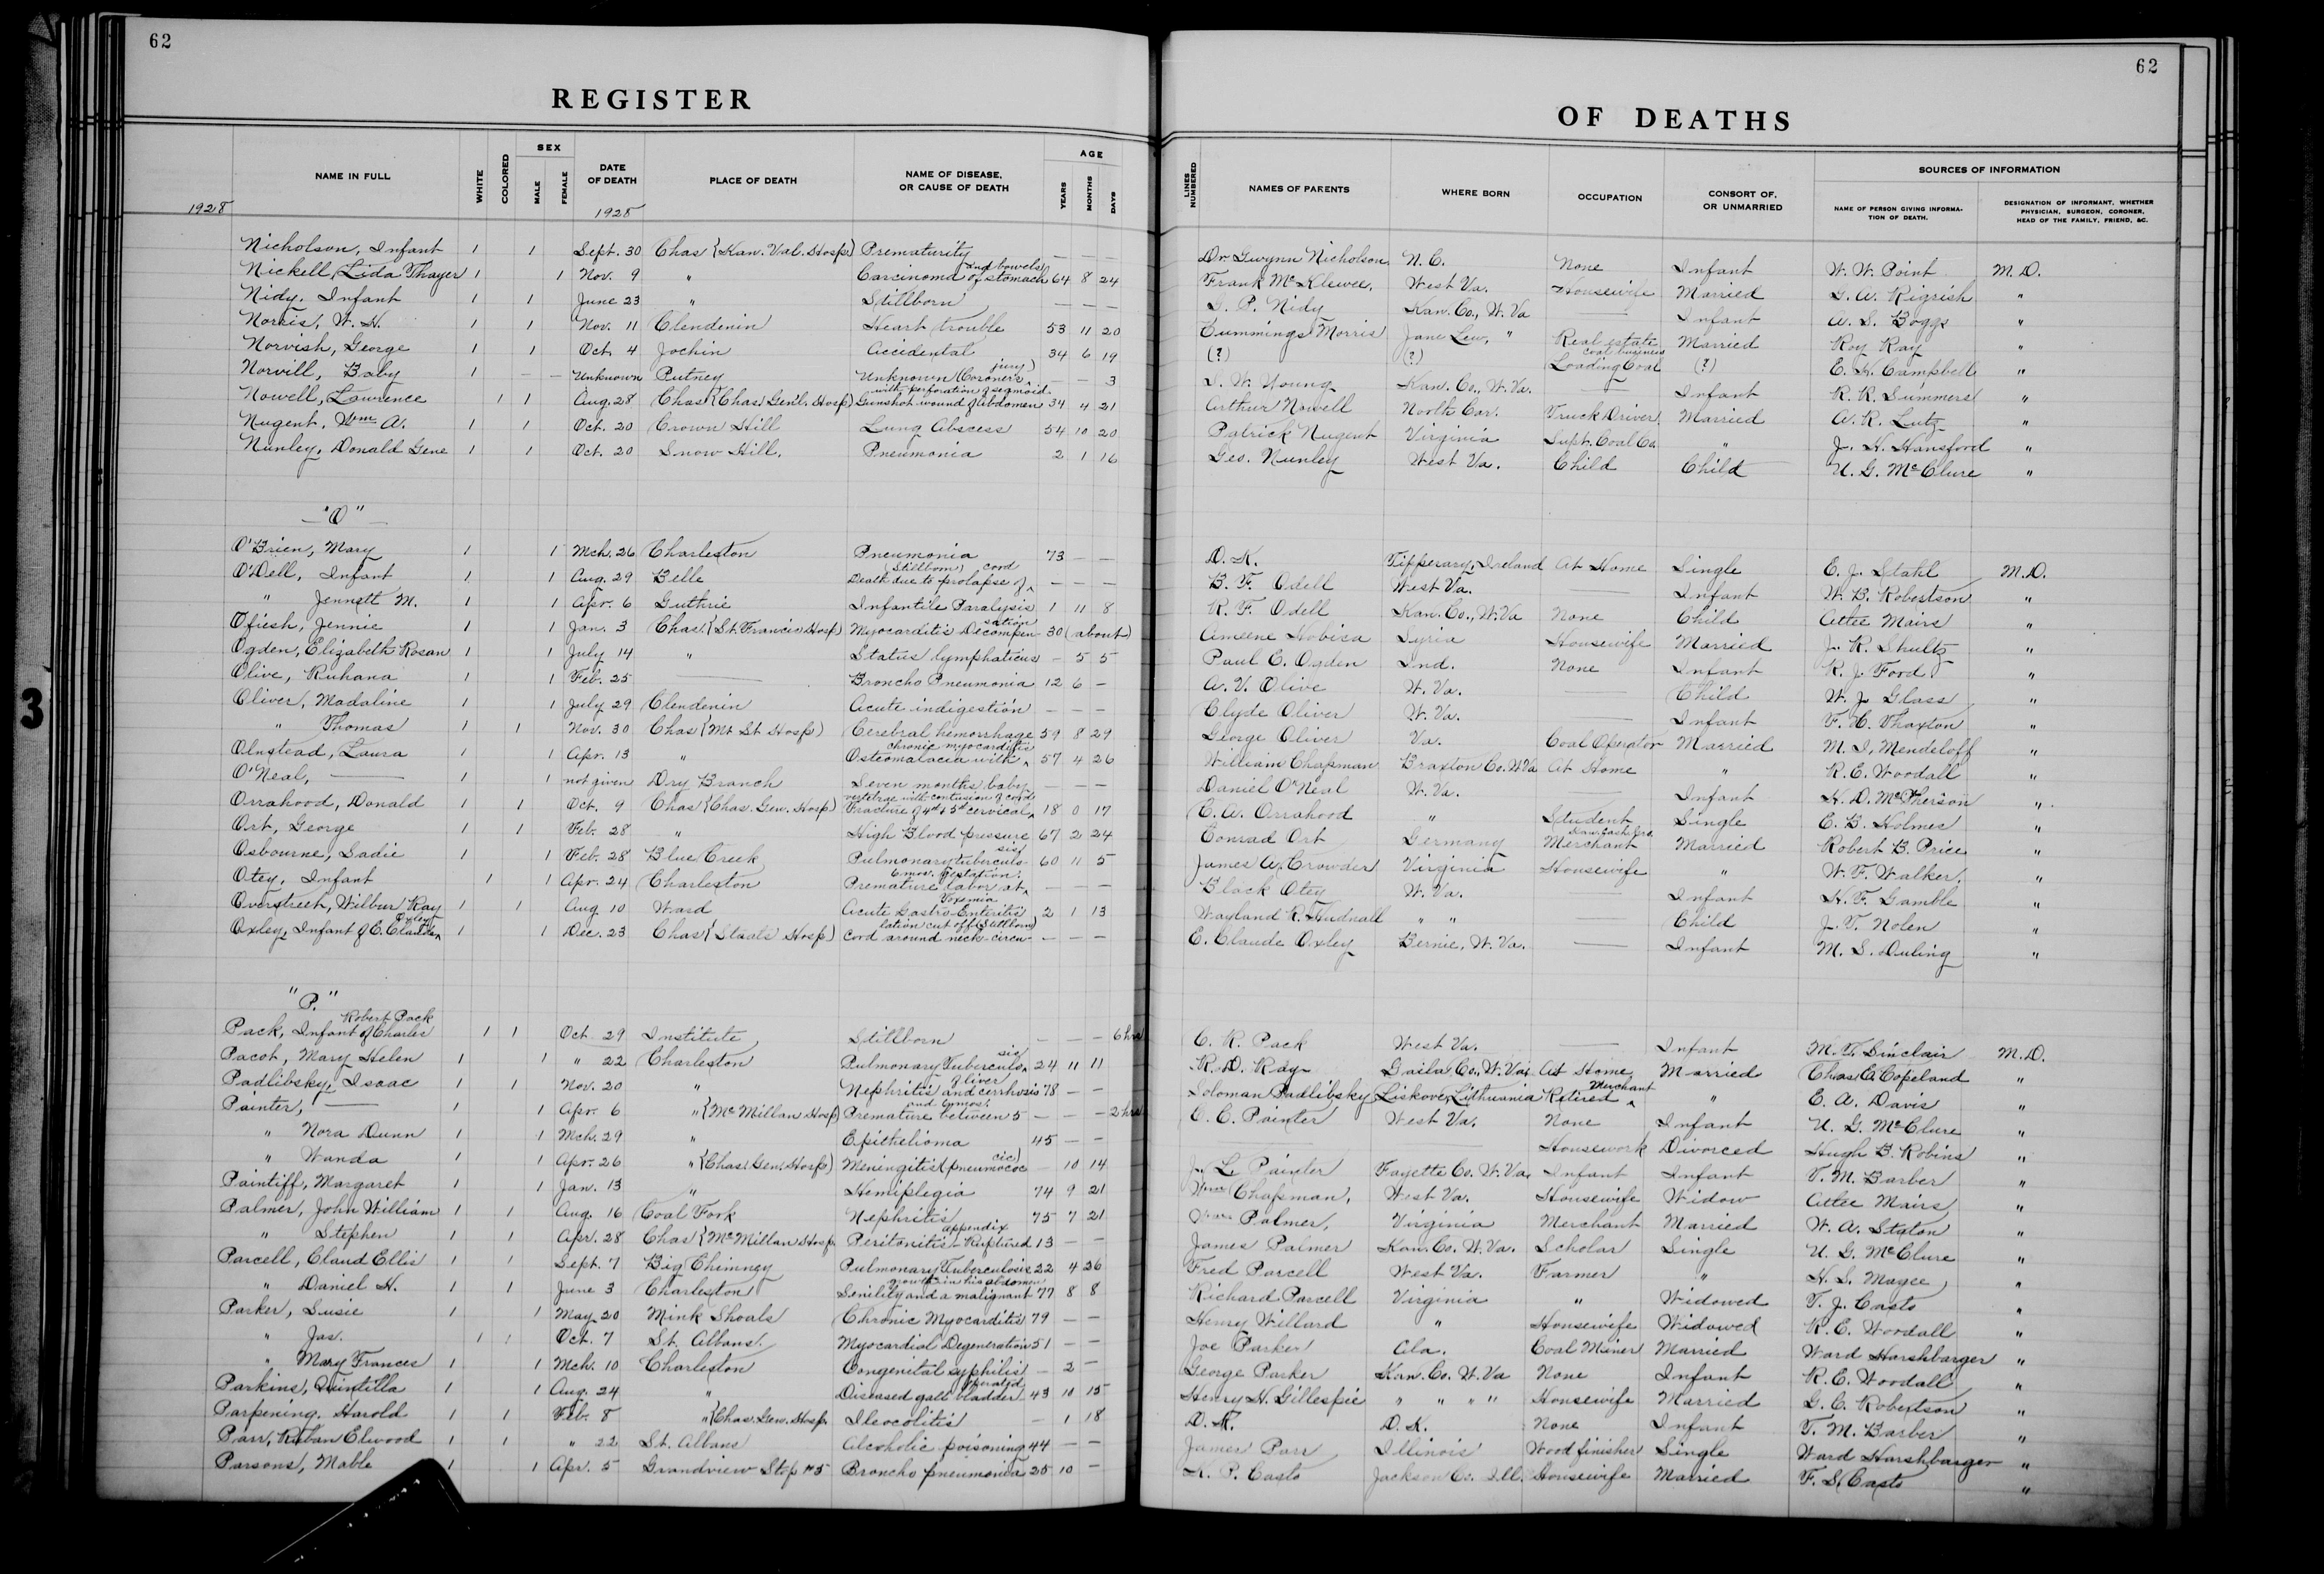 62
62
REGISTER
OF DEATHS
NAME IN FULL WHITE COLORED SEX MALE FEMALE DATE OF DEATH PLACE OF DEATH NAME OF DISEASE, OR CAUSE OF DEATH AGE YEARS MONTHS DAYS LINES NUMBERED NAMES OF PARENTS WHERE BORN OCCUPATION CONSORT OF, OR UNMARRIED SOURCES OF INFORMATION NAME OF PERSON GIVING INFORMATION OF DEATH. DESIGNATION OF INFORMANT, WHETHER PHYSICIAN, SURGEON, CORONER, HEAD OF THE FAMILY, FRIEND, &C.
1928 1928
Nicholson, Infant 1 1 Sept. 30 Chas (Kan. Val. Hosp) Prematurity — — — Dr Gwynn Nicholson N. C. None Infant W. W. Point M.D.
Nickell, Lida Thayer 1 1 Nov. 9 " Carcinoma of stomach and bowels 64 8 24 Frank McKlewee, West Va. Housewife Married G. A. Rigrish "
Nidy, Infant 1 1 June 23 " Stillborn — — — G. P. Nidy Kan. Co., W. Va — Infant A. S. Boggs "
Norris, W. H. 1 1 Nov. 11 Clendenin Heart trouble 53 11 20 Cummings Morris Jane Lew, " Real estate coal business Married Roy Ray "
Norvish, George 1 1 Oct. 4 Jochin Accidental 34 6 19 (?) (?) Loading Coal (?) E. H. Campbell "
Norvill, Baby 1 — — Unknown Putney Unknown (Coroner's jury) — — 3 S. W. Young Kan. Co., W. Va. — Infant R. R. Summers "
Nowell, Lawrence 1 1 Aug. 28 Chas (Chas. Gen'l. Hosp) Gunshot wound of abdomen with perforation of segmoid 34 4 21 Arthur Nowell North Car. Truck Driver Married A. R. Lutz "
Nugent, Wm A. 1 1 Oct. 20 Crown Hill Lung Abscess 54 10 20 Patrick Nugent Virginia Supt. Coal Co. " J. H. Hansford "
Nunley, Donald Gene 1 1 Oct. 20 Snow Hill. Pneumonia 2 1 16 Geo. Nunley West Va. Child Child U. G. McClure "
"O"
O'Brien, Mary 1 1 Mch. 26 Charleston Pneumonia 73 — — D. K. Tipperary, Ireland At Home Single E. J. Stahl M.D.
O'Dell, Infant 1 1 Aug. 29 Belle (Stillborn) Death due to prolapse of cord — — — B. F. Odell West Va. — Infant W. B. Robertson "
" Jennett M. 1 1 Apr. 6 Guthrie Infantile Paralysis 1 11 8 R. F. Odell Kan. Co., W. Va None Child Attee Mairs "
Ofiesh, Jennie 1 1 Jan. 3 Chas. (St. Francis Hosp) Myocarditis Decompensation 30 (about) Ameene Kobica Syria Housewife Married J. R. Shultz "
Ogden, Elizabeth Rosan 1 1 July 14 " Status lymphaticus — 5 5 Paul C. Ogden Ind. None Infant R. J. Ford "
Olive, Ruhana 1 1 Feb. 25 — Broncho Pneumonia 12 6 — A. V. Olive W. Va. — Child W. J. Glass "
Oliver, Madaline 1 1 July 29 Clendenin Acute indigestion — — — Clyde Oliver W. Va. — Infant F. H. Thaxton "
" Thomas 1 1 Nov. 30 Chas (Mt St. Hosp) Cerebral hemorrhage 59 8 29 George Oliver Va. Coal Operator Married M. I. Mendeloff "
Olnstead, Laura 1 1 Apr. 13 " Osteomalacia with chronic myocarditis 57 4 26 William Chapman Braxton Co. W. Va At Home " R. C. Woodall "
O'Neal, — 1 1 not given Dry Branch Seven months baby — — — Daniel O'Neal W. Va. — Infant H. D. McPherson "
Orrahood, Donald 1 1 Oct. 9 Chas (Chas. Gen. Hosp) Fracture of 4th & 5th cervical vertebrae with contusion of cord 18 0 17 C. A. Orrahood " Student Single E. B. Holmes "
Ort, George 1 1 Feb. 28 " High Blood pressure 67 2 24 Conrad Ort Germany Merchant Married Robert B. Price "
Osbourne, Sadie 1 1 Feb. 28 Blue Creek Pulmonary tuberculosis 60 11 5 James A. Crowder Virginia Housewife " W. F. Walker "
Otey, Infant 1 1 Apr. 24 Charleston Premature labor at 6 mos. gestation. — — — Black Otey W. Va. — Infant H. F. Gamble "
Overstreet, Wilbur Ray 1 1 Aug. 10 Ward Acute Gastro-Enteritis Toxemia 2 1 13 Wayland R. Hudnall " " — Child J. T. Nolen "
Oxley, Infant of E. Claude Oxley 1 1 Dec. 23 Chas (Staats Hosp) Cord around neck - circulation cut off (Stillborn) — — — E. Claude Oxley Bernie, W. Va. — Infant M. S. Duling "
"P."
Pack, Infant of Charles Robert Pack 1 1 Oct. 29 Institute Stillborn — — — 6 hrs C. R. Pack West Va. — Infant M. T. Sinclair M.D.
Pacot, Mary Helen 1 1 " 22 Charleston Pulmonary Tuberculosis 24 11 11 R. D. Ray Gaila Co., W. Va. At Home Married Chas. E. Copeland "
Padlibsky, Isaac 1 1 Nov. 20 " Nephritis and cirrhosis of liver 78 — — Soloman Padlibsky Liskove, Lithuania Retired Merchant " E. A. Davis "
Painter, — 1 1 Apr. 6 " (McMillan Hosp) Premature between 5 and 6 mos. — — — 2 hrs C. C. Painter West Va. None Infant U. G. McClure "
" Nora Dunn 1 1 Mch. 29 " Epithelioma 45 — — — — Housework Divorced Hugh B. Robins "
" Wanda 1 1 Apr. 26 " (Chas. Gen. Hosp) Meningitis (pneumococcic) — 10 14 J. L. Painter Fayette Co. W. Va. Infant Infant T. M. Barber "
Paintiff, Margaret 1 1 Jan. 13 " Hemiplegia 74 9 21 Wm Chapman, West Va. Housewife Widow Attee Mairs "
Palmer, John William 1 1 Aug. 16 Coal Fork Nephritis 75 7 21 Wm Palmer, Virginia Merchant Married W. A. Staton "
" Stephen 1 1 Apr. 28 Chas (McMillan Hosp. Peritonitis - Ruptured appendix 13 — — James Palmer Kan. Co. W. Va. Scholar Single U. G. McClure "
Parcell, Claud Ellis 1 1 Sept. 7 Big Chimney Pulmonary Tuberculosis 22 4 26 Fred Parcell West Va. Farmer " H. S. Magee "
" Daniel H. 1 1 June 3 Charleston Senility and a malignant growth in his abdomen 77 8 8 Richard Parcell Virginia " Widowed T. J. Casto "
Parker, Susie 1 1 May 20 Mink Shoals Chronic Myocarditis 79 — — Henry Willard " Housewife Widowed R. C. Woodall "
" Jas. 1 1 Oct. 7 St. Albans. Myocardial Degeneration 51 — — Joe Parker Ala. Coal Miner Married Ward Harshbarger "
" Mary Frances 1 1 Mch. 10 Charleston Congenital syphilis — 2 — George Parker Kan. Co. W. Va None Infant R. C. Woodall "
Parkins, Quintilla 1 1 Aug. 24 " Diseased gall bladder operated 43 10 15 Henry H. Gillespie " " " " Housewife Married G. C. Robertson "
Parpening, Harold 1 1 Feb. 8 " (Chas. Gen. Hosp. Ileocolitis — 1 18 D. K. D. K. None Infant T. M. Barber "
Parr, Ruban Elwood 1 1 " 22 St. Albans Alcoholic poisoning 44 — — James Parr Illinois Wood finisher Single Ward Harshbarger "
Parsons, Mable 1 1 Apr. 5 Grandview Stop #5 Broncho pneumonia 25 10 — K. P. Casto Jackson Co. Ill. Housewife Married F. S. Casto "
3